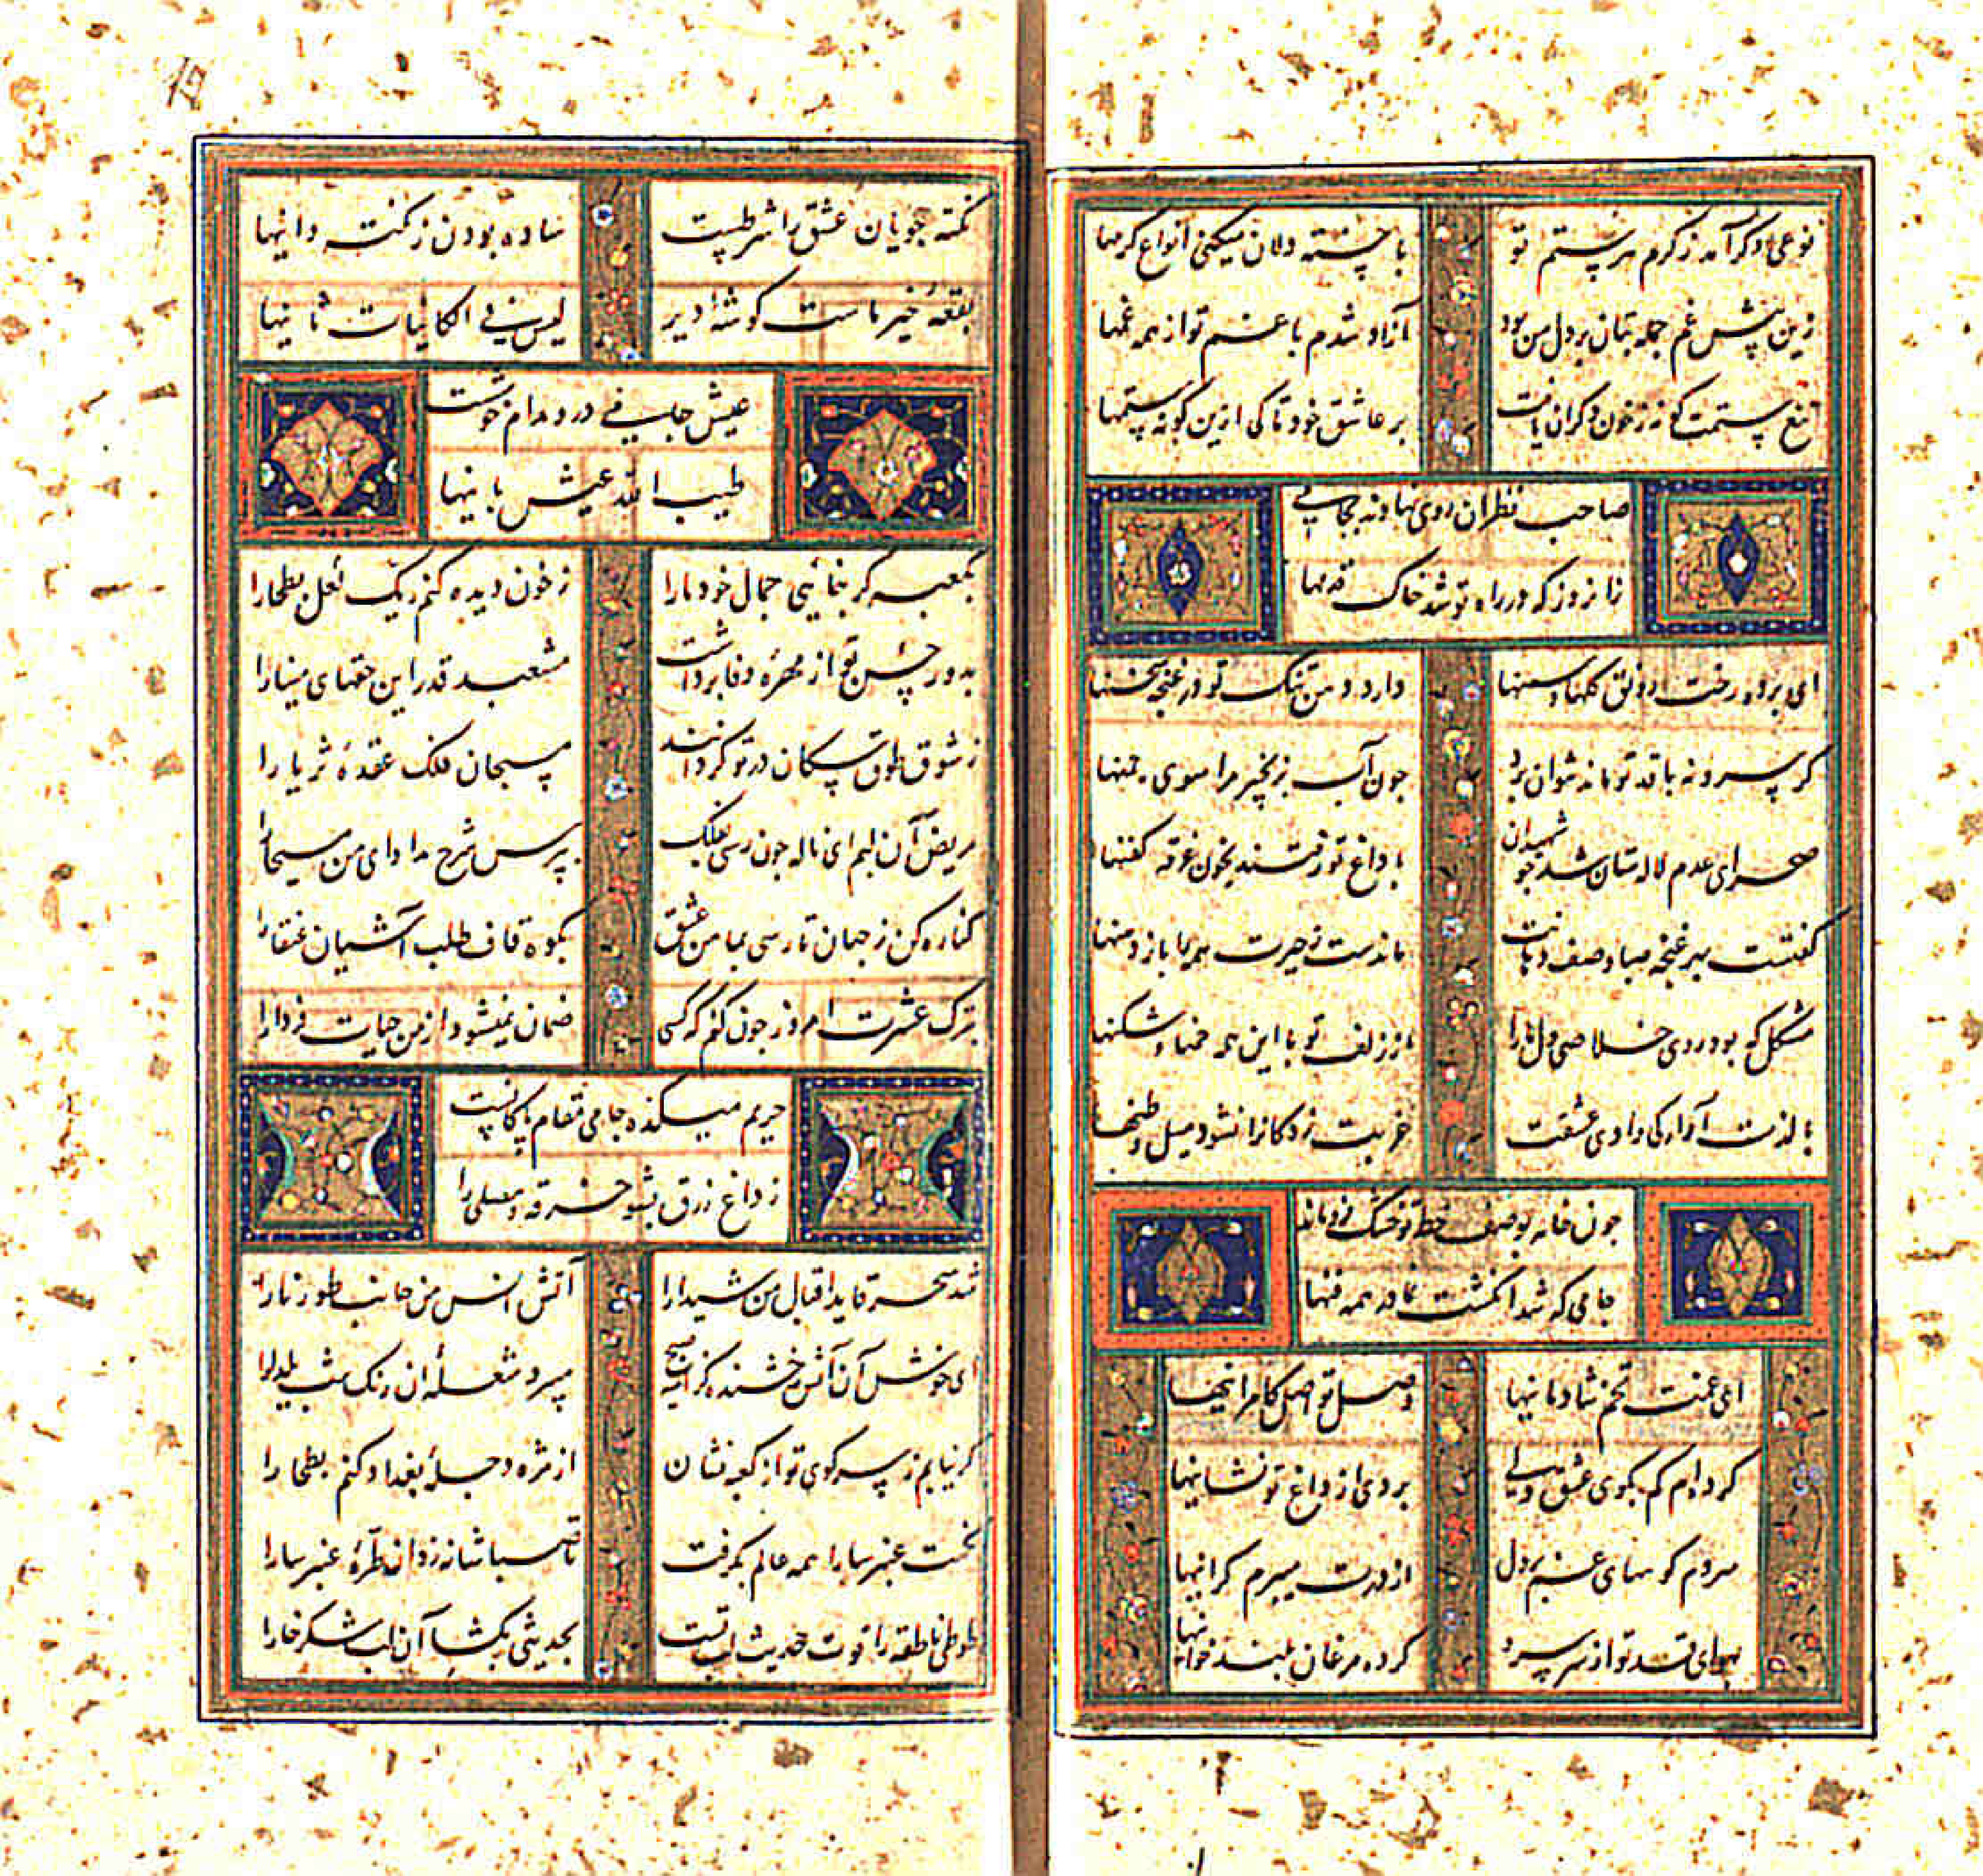 نوعی دگر آمد ز کرم هر ستم تو با خسته دلان میکنی انواع کرمها
زین پیش غم جمله بتان بر دل من بود آزاد شدم با غم تو از همه غمها
تیغ ستمت گونه ز خون دگران یافت بر عاشق خود تا کی ازین گونه ستمها
صاحب نظران روی نهادند بجامی
زان روز که در راه تو شد خاک قدمها
ای برده رخت رونق گلها و سمنها دارد دهن تنگ تو در غنچه سخنها
گر سرو نه با قد تو ماند نتوان برد چون آب بزنجیر مرا سوی چمنها
صحرای عدم لاله ستان شد چو شهیدان با داغ تو رفتند بخون غرقه کفنها
گفتست بهر غنچه صبا وصف دهانت ماندست ز حیرت همه را باز دهنها
مشکل که بود روی خلاصی دل ما را از زلف تو با این همه خمها و شکنها
با لذت آوارکی وادی عشقت غربت زدکانرا نشود میل وطنها
چون خامه بوصف خط تو خشک فرو ماند
جامی که شد انگشت نما در همه فنها
ای غمت تخم شادمانیها وصل تو اصل کامرانیها
کرده‌ام گم بکوی عشق دلی بردی از داغ تو نشانیها
مردم کوههای غم بر دل از درت میبرم گرانیها
بهوای قد تو از سر سرو کرده مرغان بلند خوانیها
نکته جویان عشق را شرطیست ساده بودن ز نکته دانیها
بقعهٔ خیر ماست گوشهٔ دیر لیس فی الکائنات ثانیها
عیش جامی ز درد مدام خوشست
طیب الله عیش بانیها
بکعبه گر بنمائی جمال خود ما را ز خون دیده کنم ریک لعل بطحا را
بدور حسن تو از مهره وفا برداشت مشعبد قدر این حقهای مینا را
ز شوق طوق سگان در تو گردانند مسبحان فلک عقدهٔ ثریا را
مریض آن لبم ای ناله چون رسی بفلک بپرس شرح مداوای من مسیحا را
کناره کن ز جهان تا رسی بمامن عشق بکوه قاف طلب آشیان عنقا را
بترک عشرت امروز چون کنم که کسی ضمان نمیشود از من حیات فردا را
حریم میکده جامی مقام پاکانست
ز داغ زرق بشو خرقه و مصلی را
شد سحر قاید اقبال من شیدا را آنش انس من جانب طور نارا
ای خوش آن آتش رخشنده کز آسیب صبح میبرد شعله آن رنک شب یلدا را
گر نیابم ز سر کوی تو از کعبه نشان از مژه دجلهٔ بغداد کنم بطحا را
نکهت عنبر سارا همه عالم بگرفت تا صبا شانه زد آن طرهٔ عنبر سارا
طوطی ناطقه را قوت حدیث لب تست بحدیثی بکشا آن لب شکر خا را